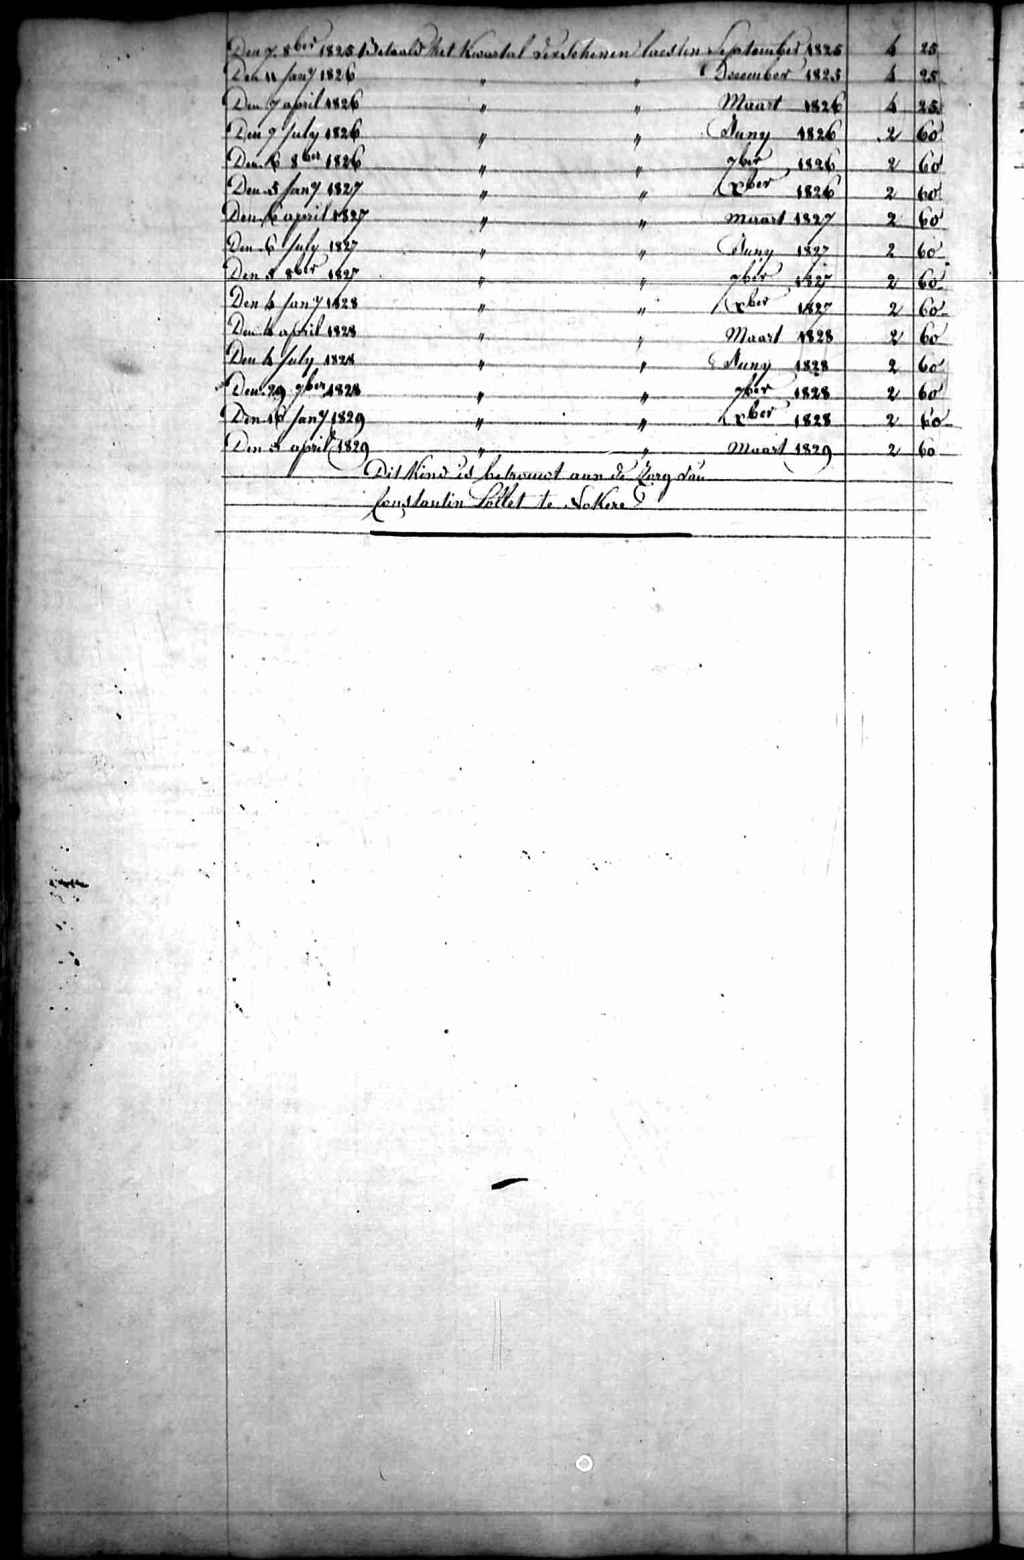 Den 7 8ber 1825 Betaald het Kwartal verschenen laesten September 1825 4 25
Den 11 Jany 1826 " " December 1825 4 25
Den 7 april 1826 " " Maart 1826 4 25
Den 7 July 1826 " " Juny 1826 2 60
Den 6 8ber 1826 " " 7ber 1826 2 60
Den 5 Jany 1827 " " Xber 1826 2 60
Den 6 april 1827 " " maart 1827 2 60
Den 6 July 1827 " " Juny 1827 2 60
Den 5 8ber 1827 " " 7ber 1827 2 60
Den 4 Jany 1828 " " Xber 1827 2 60
Den 4 april 1828 " " Maart 1828 2 60
Den 4 July 1828 " " Juny 1828 2 60
Den 29 7ber 1828 " " 7ber 1828 2 60
Den 16 Jany 1829 " " Xber 1828 2 60
Den 3 april 1829 " " Maart 1829 2 60
Dit Kind is betrouwt aan de Zorg van
Constantin te Nokere